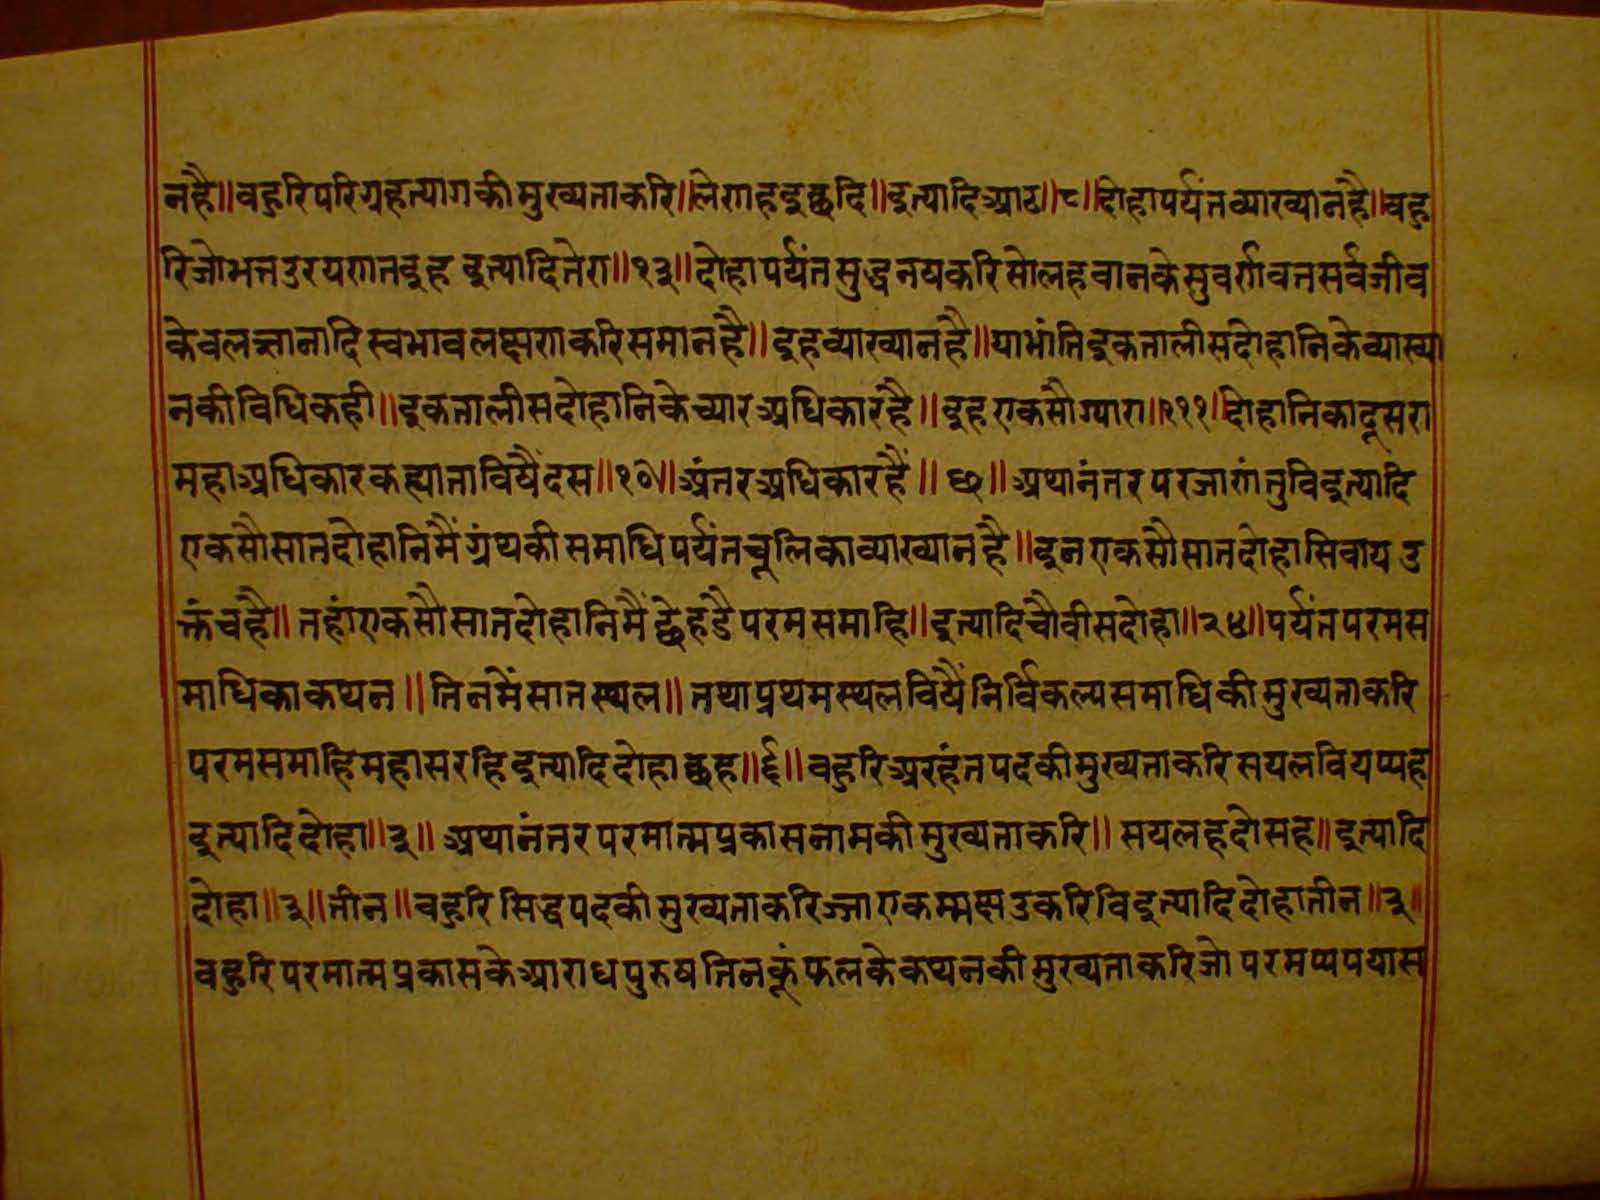 नहै॥बहुरिपरिग्रहत्यागकीमुख्यताकरि॥लेणहइछदि॥इत्यादिआठ॥८॥दोहापर्यंतव्याख्यानहै॥बहु
रिजोभत्तउरयणत्तइह इत्यादितेरा॥१३॥दोहापर्यंतसुद्धनयकरिसोलहवानकेसुवर्णवतसर्वजीव
केवलज्ञानादिस्वभावलक्षणकरिसमानहै॥इहव्याख्यानहै॥याभांतिइकतालीसदोहानिकेव्याख्या
नकीविधिकही॥इकतालीसदोहानिकेच्यारअधिकारहै॥इहएकसौग्यारा॥१११॥दोहानिकादूसरा
महाअधिकारकह्यातावियैंदस॥१०॥अंतरअधिकारहैं॥छ॥अथानंतरपरजाणंतुविइत्यादि
एकसौसातदोहानिमैंग्रंथकीसमाधिपर्यंतचूलिकाव्याख्यानहै॥इनएकसौसातदोहासिवाय उ
क्तंचहै॥तहांएकसौसातदोहानिमैं छेहडैपरमसमाहि॥इत्यादिचौवीसदोहा॥२४॥पर्यंतपरमस
माधिकाकथन॥तिनमैंसातस्थल॥तथाप्रथमस्थलवियैंनिर्विकल्पसमाधिकीमुख्यताकरि
परमसमाहिमहासरहिइत्यादिदोहाछह॥६॥बहुरिअरहंतपदकीमुख्यताकरिसयलवियप्पह
इत्यादिदोहा॥३॥अथानंतरपरमात्मप्रकासनामकीमुख्यताकरि॥सयलहदोसह॥इत्यादि
दोहा॥३॥तीन॥बहुरिसिद्धपदकीमुख्यताकरिज्झाएकम्मक्षउकरिविइत्यादिदोहातीन॥३॥
बहुरिपरमात्मप्रकासकेआराधपुरुषतिनकूंफलकेकथनकीमुख्यताकरिजोपरमप्पपयास